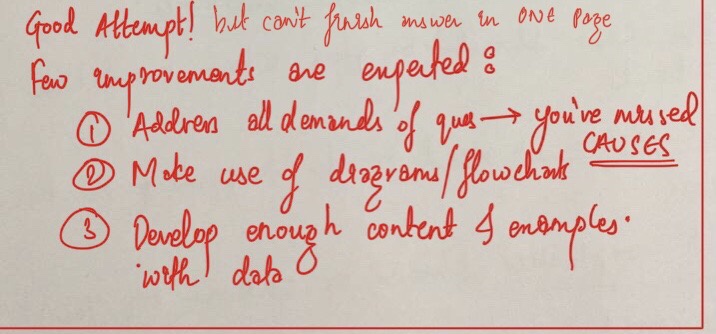 Good Attempt! but can't finish answer in ONE Page
Few improvements are expected :
① Address all demands of ques → you've missed
CAUSES
② Make use of diagrams/flowcharts
③ Develop enough content & examples.
with data